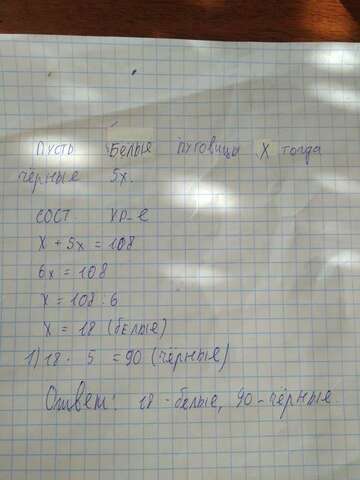 Пусть Белые пуговицы X тогда
чёрные 5x.
сост. ур-е
x + 5x = 108
6x = 108
x = 108 : 6
x = 18 (белые)
1) 18 · 5 = 90 (чёрные)
Ответ: 18 - белые, 90 - чёрные.